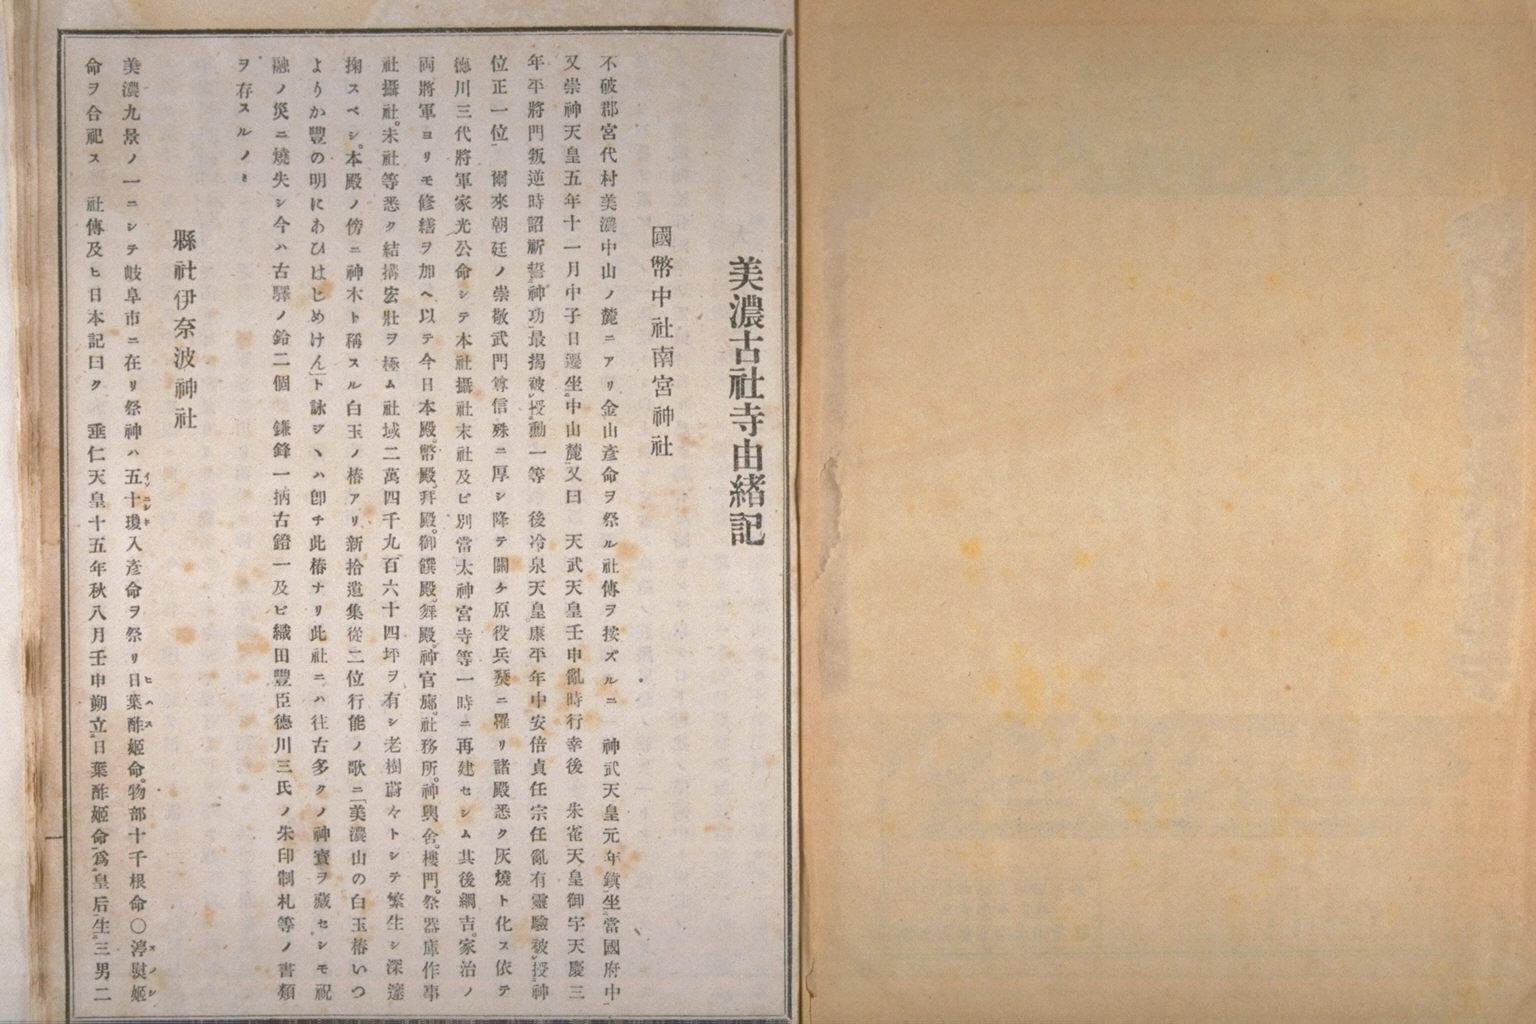 美濃古社寺由緒記
國幣中社南宮神社
不破郡宮代村美濃中山ノ麓ニアリ金山彥命ヲ祭ル社傳ヲ按ズルニ　神武天皇元年鎭坐當國府中
又崇神天皇五年十一月中子日遷坐中山麓又曰　天武天皇壬申亂時行幸後　朱雀天皇御宇天慶三
年平將門叛逆時詔祈誓神功最揭被授勳一等　後冷泉天皇康平年中安倍貞任宗任亂有靈驗被授神
位正一位　爾來朝廷ノ崇敬武門尊信殊ニ厚シ降テ關ケ原役兵燹ニ罹リ諸殿悉ク灰燒ト化ス依テ
德川三代將軍家光公命シテ本社攝社末社及ビ別當太神宮寺等一時ニ再建セシム其後綱吉。家治ノ
両將軍ヨリモ修繕ヲ加ヘ以テ今日本殿。幣殿。拜殿。御饌殿。舞殿。神官廊。社務所。神輿舍。樓門。祭器庫作事
社攝社。末社等悉ク結搆宏壯ヲ極ム社域二萬四千九百六十四坪ヲ有シ老樹蔚々トシテ繁生シ深邃
掬スベシ。本殿ノ傍ニ神木ト稱スル白玉ノ椿アリ新拾遺集從二位行能ノ歌ニ「美濃山の白玉椿いつ
よりか豐の明にあひはじめけん」ト詠ジヽハ卽チ此椿ナリ此社ニハ往古多クノ神寶ヲ藏セシモ祝
融ノ災ニ燒失シ今ハ古驛ノ鈴二個　鎌鋒一柄古鐙一及ビ織田豐臣德川三氏ノ朱印制札等ノ書類
ヲ存スルノミ
縣社伊奈波神社
美濃九景ノ一ニシテ岐阜市ニ在リ祭神ハ五十瓊入彥命ヲ祭リ日葉酢姬命。物部十千根命〇渟熨姬
命ヲ合祀ス　社傳及ヒ日本記曰ク　垂仁天皇十五年秋八月壬申朔立日葉酢姬命爲皇后生三男二